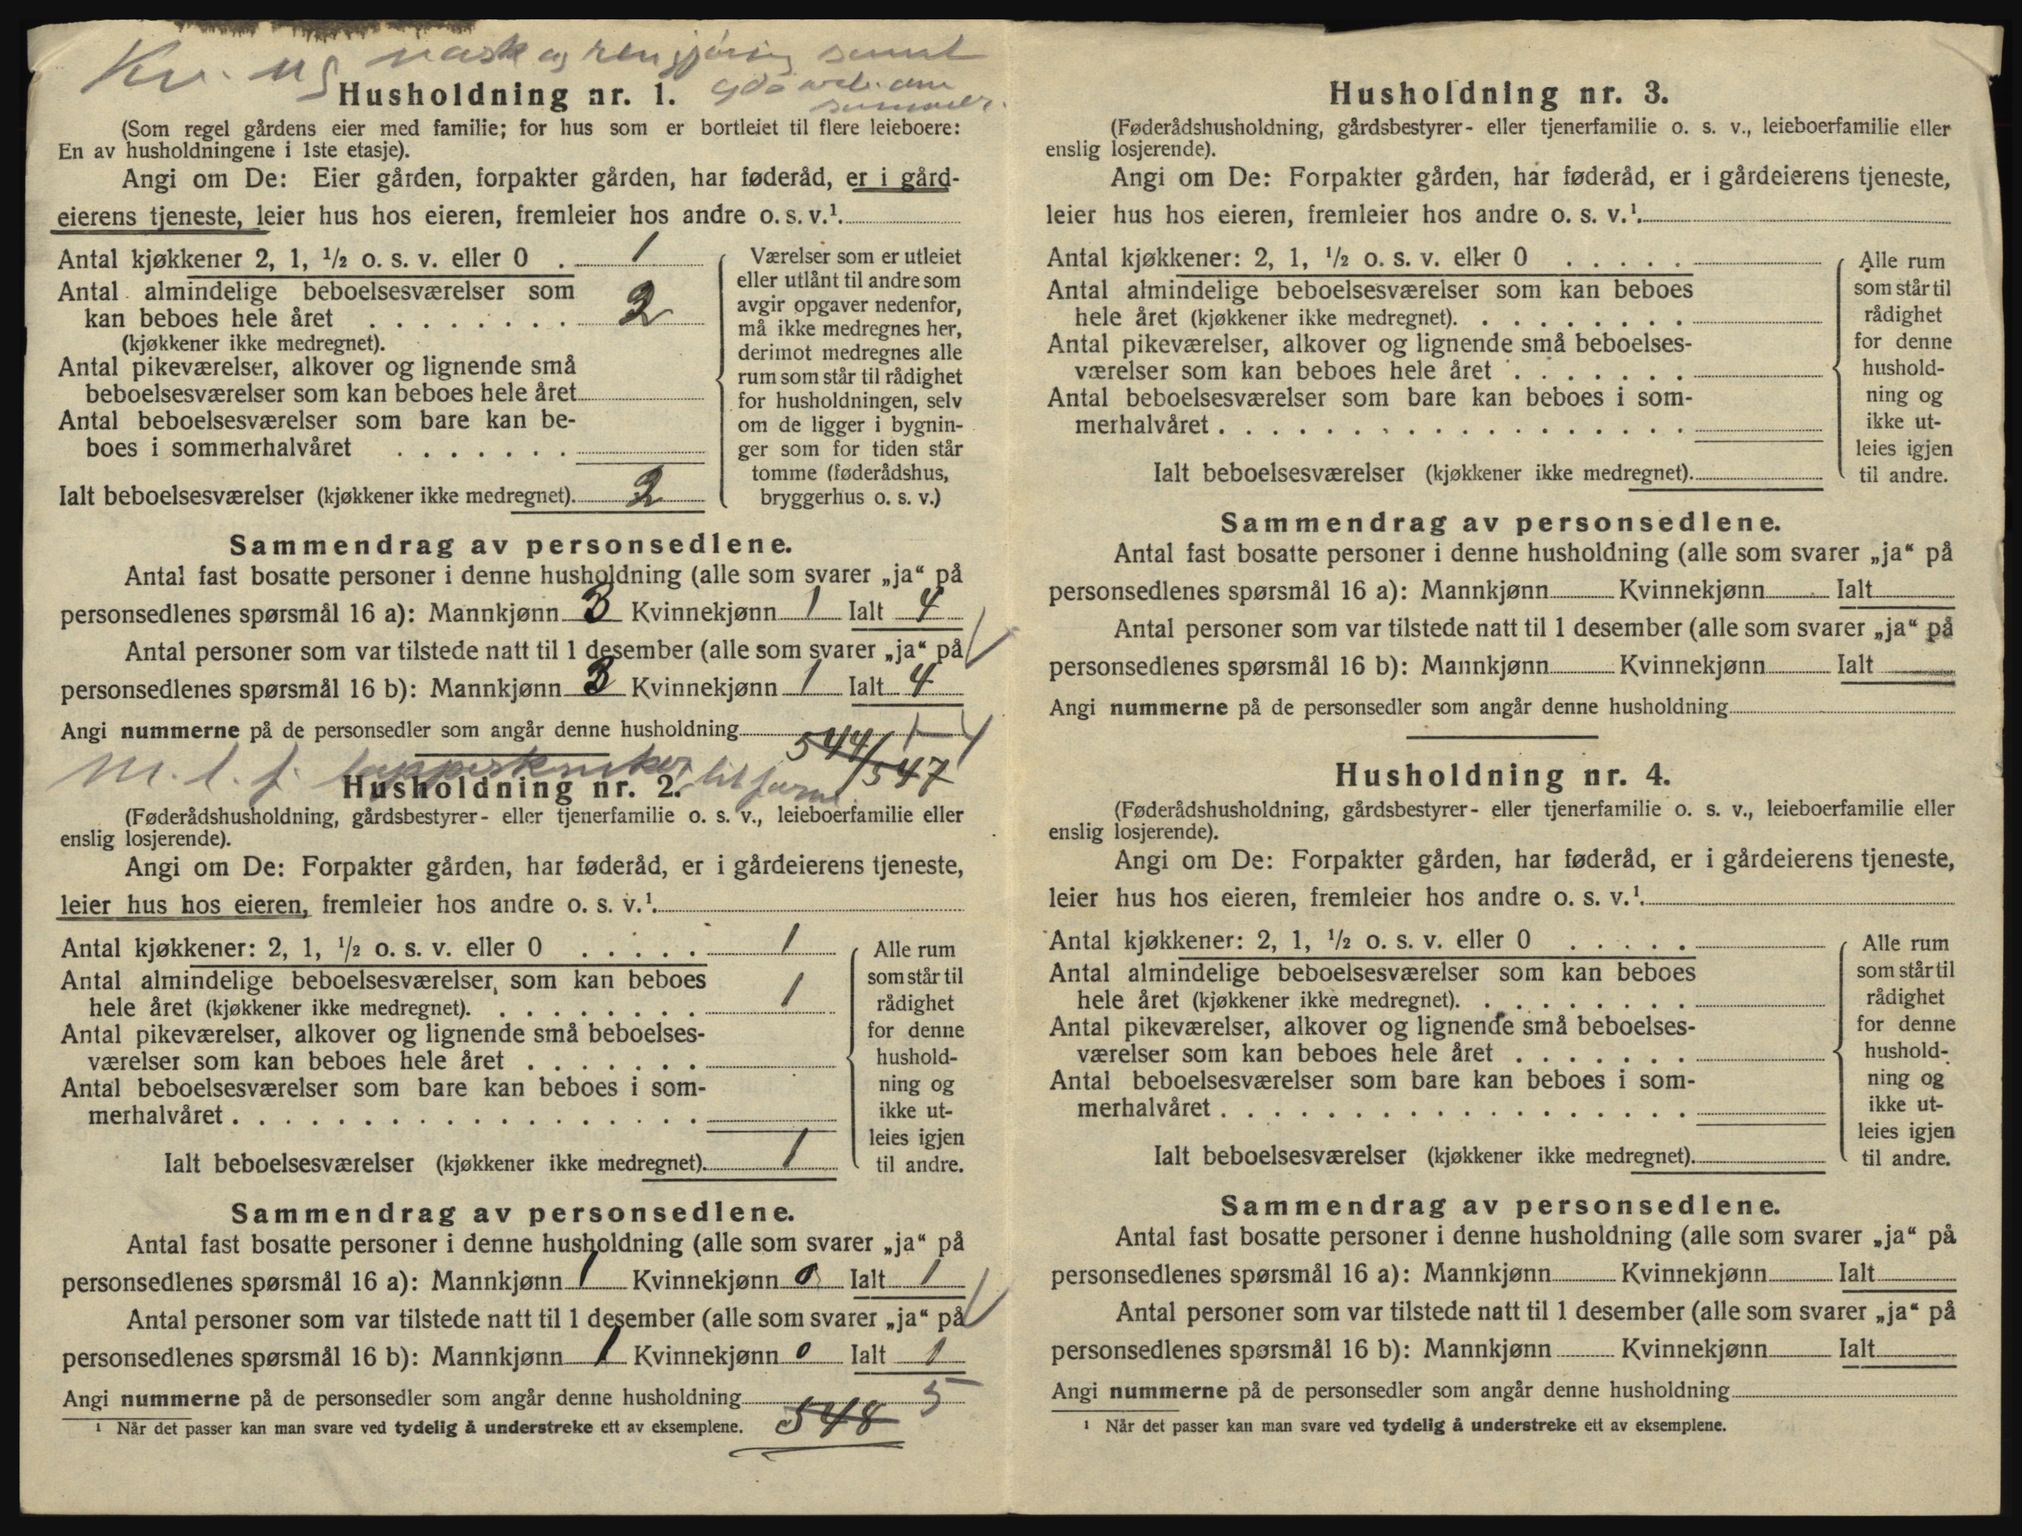 Kv. ug vask og rengjøring samt
gårdsarb. om
sommer.
Husholdning nr. 1.
(Som regel gårdens eier med familie; for hus som er bortleiet til flere leieboere:
En av husholdningene i 1ste etasje).
Angi om De: Eier gården, forpakter gården, har føderåd, er i gård-
eierens tjeneste, leier hus hos eieren, fremleier hos andre o. s. v.¹.
Antal kjøkkener 2, 1, ½ o. s. v. eller 0 . 1
Antal almindelige beboelsesværelser som
kan beboes hele året . . . . . . . . 2
(kjøkkener ikke medregnet).
Antal pikeværelser, alkover og lignende små
beboelsesværelser som kan beboes hele året
Antal beboelsesværelser som bare kan be-
boes i sommerhalvåret . . . . . . .
Ialt beboelsesværelser (kjøkkener ikke medregnet). 2
Værelser som er utleiet
eller utlånt til andre som
avgir opgaver nedenfor,
må ikke medregnes her,
derimot medregnes alle
rum som står til rådighet
for husholdningen, selv
om de ligger i bygnin-
ger som for tiden står
tomme (føderådshus,
bryggerhus o. s. v.)
Sammendrag av personsedlene.
Antal fast bosatte personer i denne husholdning (alle som svarer „ja“ på
personsedlenes spørsmål 16 a): Mannkjønn 3 Kvinnekjønn 1 Ialt 4
Antal personer som var tilstede natt til 1 desember (alle som svarer „ja“ på
personsedlenes spørsmål 16 b): Mannkjønn 3 Kvinnekjønn 1 Ialt 4
Angi nummerne på de personsedler som angår denne husholdning 1-4
544/547
M. l. f. til
Husholdning nr. 2.
(Føderådshusholdning, gårdsbestyrer- eller tjenerfamilie o. s. v., leieboerfamilie eller
enslig losjerende).
Angi om De: Forpakter gården, har føderåd, er i gårdeierens tjeneste,
leier hus hos eieren, fremleier hos andre o. s. v.¹.
Antal kjøkkener: 2, 1, ½ o. s. v. eller 0 . . . . . 1
Antal almindelige beboelsesværelser som kan beboes
hele året (kjøkkener ikke medregnet). . . . . . . . . 1
Antal pikeværelser, alkover og lignende små beboelses-
værelser som kan beboes hele året . . . . . . .
Antal beboelsesværelser som bare kan beboes i som-
merhalvåret . . . . . . . . . . . . . . . . . .
Ialt beboelsesværelser (kjøkkener ikke medregnet). 1
Alle rum
som står til
rådighet
for denne
hushold-
ning og
ikke ut-
leies igjen
til andre.
Sammendrag av personsedlene.
Antal fast bosatte personer i denne husholdning (alle som svarer „ja“ på
personsedlenes spørsmål 16 a): Mannkjønn 1 Kvinnekjønn 0 Ialt 1
Antal personer som var tilstede natt til 1 desember (alle som svarer „ja“ på
personsedlenes spørsmål 16 b): Mannkjønn 1 Kvinnekjønn 0 Ialt 1
Angi nummerne på de personsedler som angår denne husholdning 5
548
¹ Når det passer kan man svare ved tydelig å understreke ett av eksemplene.
Husholdning nr. 3.
(Føderådshusholdning, gårdsbestyrer- eller tjenerfamilie o. s. v., leieboerfamilie eller
enslig losjerende).
Angi om De: Forpakter gården, har føderåd, er i gårdeierens tjeneste,
leier hus hos eieren, fremleier hos andre o. s. v.¹.
Antal kjøkkener: 2, 1, ½ o. s. v. eller 0 . . . . .
Antal almindelige beboelsesværelser som kan beboes
hele året (kjøkkener ikke medregnet). . . . . . . . .
Antal pikeværelser, alkover og lignende små beboelses-
værelser som kan beboes hele året . . . . . . .
Antal beboelsesværelser som bare kan beboes i som-
merhalvåret . . . . . . . . . . . . . . . . . .
Ialt beboelsesværelser (kjøkkener ikke medregnet).
Alle rum
som står til
rådighet
for denne
hushold-
ning og
ikke ut-
leies igjen
til andre.
Sammendrag av personsedlene.
Antal fast bosatte personer i denne husholdning (alle som svarer „ja“ på
personsedlenes spørsmål 16 a): Mannkjønn Kvinnekjønn Ialt
Antal personer som var tilstede natt til 1 desember (alle som svarer „ja“ på
personsedlenes spørsmål 16 b): Mannkjønn Kvinnekjønn Ialt
Angi nummerne på de personsedler som angår denne husholdning
Husholdning nr. 4.
(Føderådshusholdning, gårdsbestyrer- eller tjenerfamilie o. s. v., leieboerfamilie eller
enslig losjerende).
Angi om De: Forpakter gården, har føderåd, er i gårdeierens tjeneste,
leier hus hos eieren, fremleier hos andre o. s. v.¹.
Antal kjøkkener: 2, 1, ½ o. s. v. eller 0 . . . . .
Antal almindelige beboelsesværelser som kan beboes
hele året (kjøkkener ikke medregnet). . . . . . . . .
Antal pikeværelser, alkover og lignende små beboelses-
værelser som kan beboes hele året . . . . . . .
Antal beboelsesværelser som bare kan beboes i som-
merhalvåret . . . . . . . . . . . . . . . . . .
Ialt beboelsesværelser (kjøkkener ikke medregnet).
Alle rum
som står til
rådighet
for denne
hushold-
ning og
ikke ut-
leies igjen
til andre.
Sammendrag av personsedlene.
Antal fast bosatte personer i denne husholdning (alle som svarer „ja“ på
personsedlenes spørsmål 16 a): Mannkjønn Kvinnekjønn Ialt
Antal personer som var tilstede natt til 1 desember (alle som svarer „ja“ på
personsedlenes spørsmål 16 b): Mannkjønn Kvinnekjønn Ialt
Angi nummerne på de personsedler som angår denne husholdning
¹ Når det passer kan man svare ved tydelig å understreke ett av eksemplene.